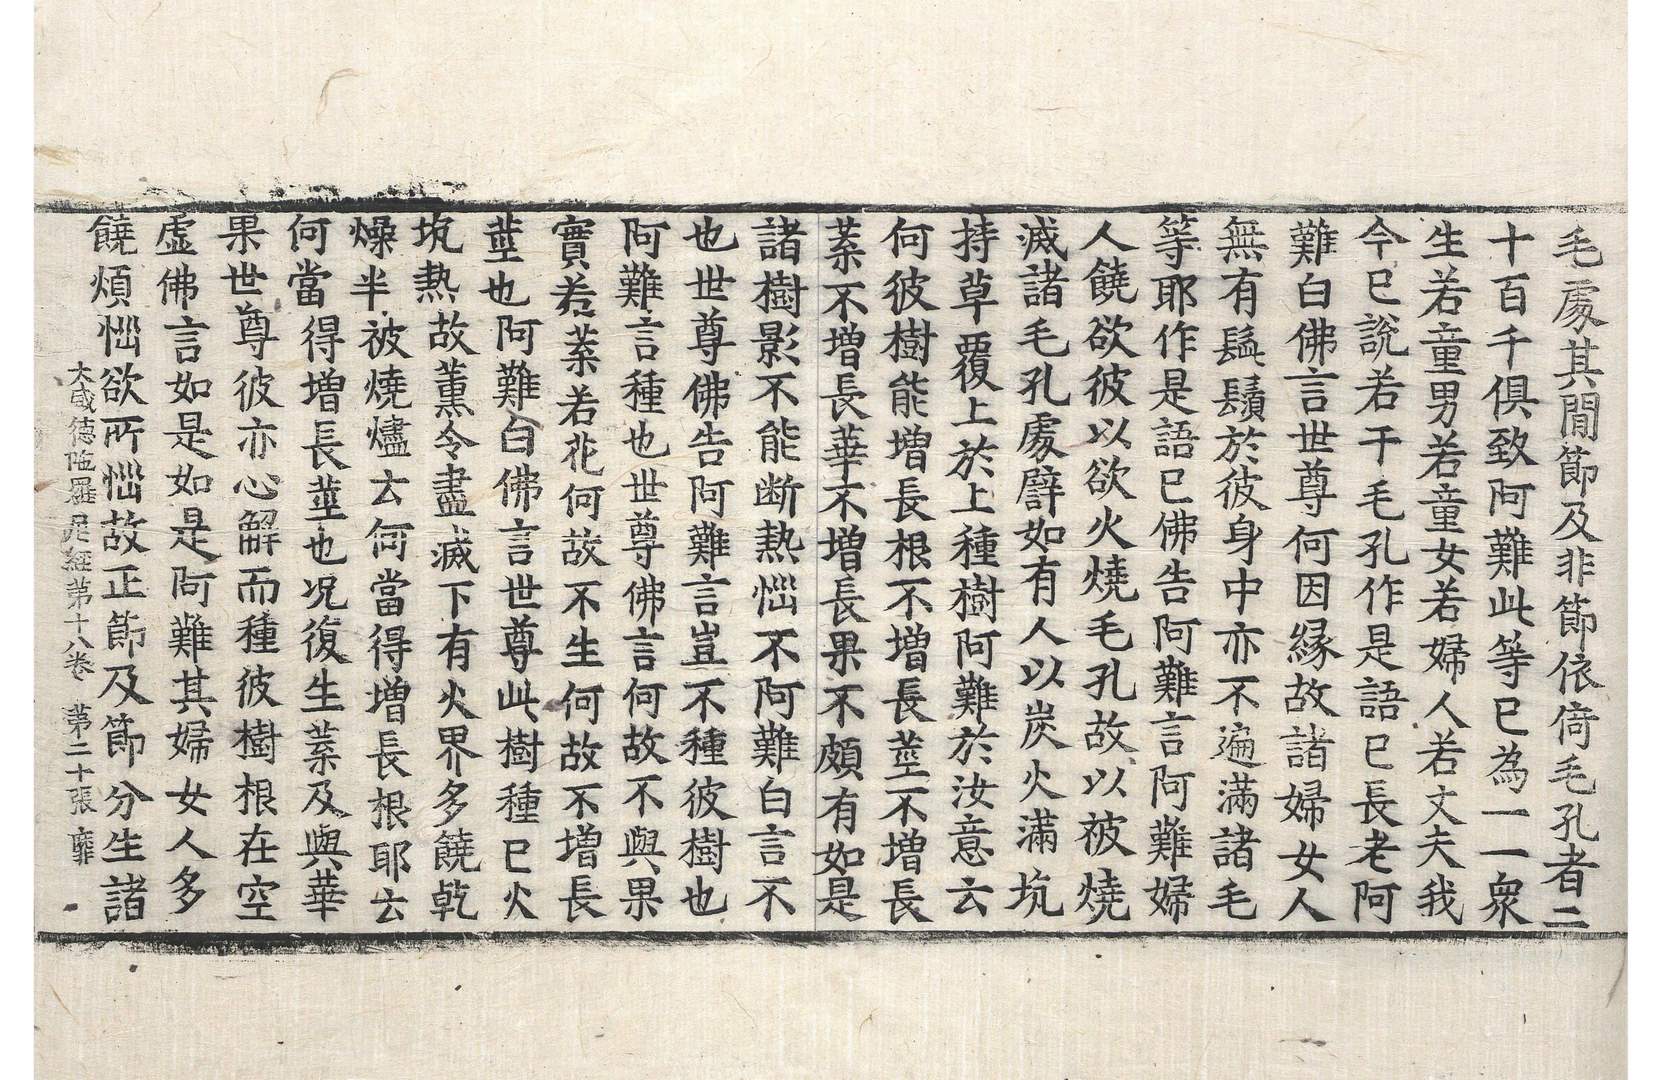 毛處其間節及非節依倚毛孔者二
十百千俱致阿難此等已為一一衆
生若童男若童女若婦人若丈夫我
今已說若干毛孔作是語已長老阿
難白佛言世尊何因緣故諸婦女人
無有髭鬚於彼身中亦不遍滿諸毛
等耶作是語已佛告阿難言阿難婦
人饒欲彼以欲火燒毛孔故以被燒
滅諸毛孔處譬如有人以炭火滿坑
持草覆上於上種樹阿難於汝意云
何彼樹能增長根不增長莖不增長
葉不增長華不增長果不頗有如是
諸樹影不能断熱惱不阿難白言不
也世尊佛告阿難言豈不種彼樹也
阿難言種也世尊佛言何故不與果
實若葉若花何故不生何故不增長
莖也阿難白佛言世尊此樹種已火
坑熱故薰令盡滅下有火界多饒乾
燥半被燒燼去何當得增長根耶云
何當得增長莖也况復生葉及與華
果世尊彼亦心解而種彼樹根在空
虛佛言如是如是阿難其婦女人多
饒煩惱欲所惱故正節及節分生諸
大威德陁羅尼經第十八卷 第二十張 靡